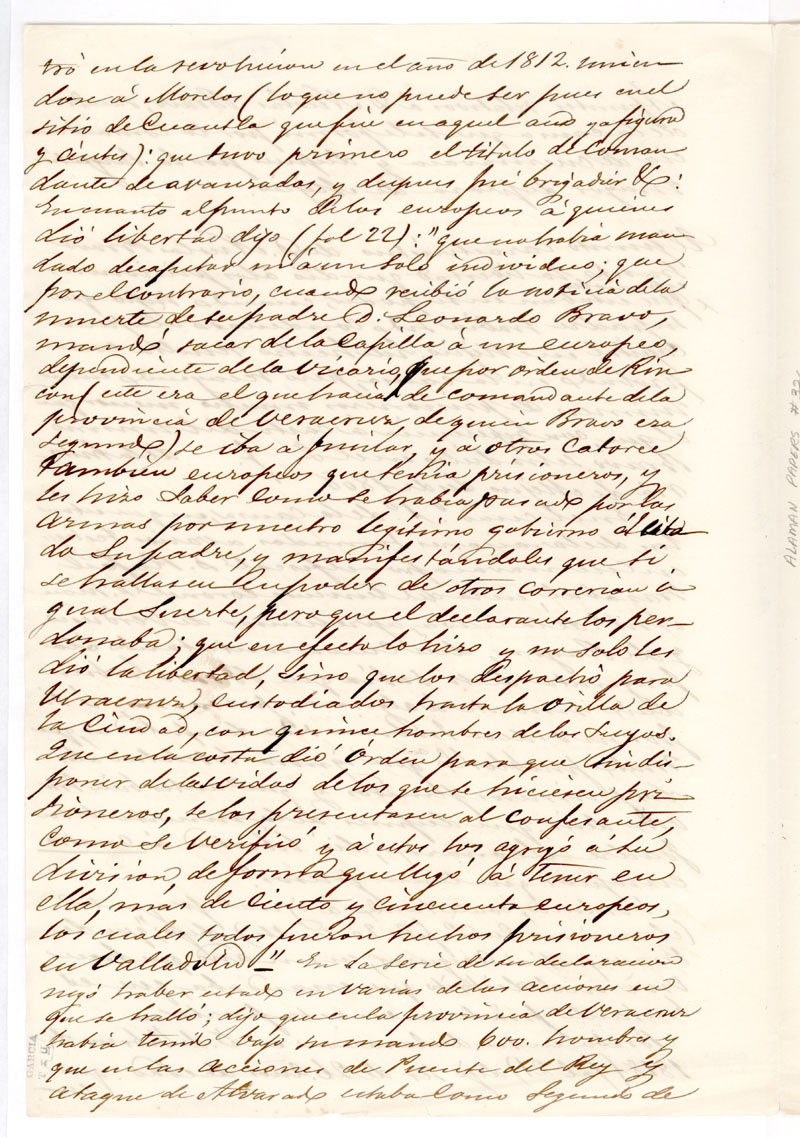 tró en la revolucion en el año de 1812. unien
dose á Morelos (lo que no puede ser pues en el
sitio de Cuautla que fue en aquel año ya figura
y ántes): que tuvo primero el título de Coman
dante de avanzadas, y despues fué brigadier &:
En cuanto al punto de los europeos á quienes
dió libertad dijo (fol 22): "que no habia man
dado decapitar ni á un solo individuo; que
por el contrario, cuando recibió la noticia de la
muerte de su padre D. Leonardo Bravo,
mandó sacar de la Capilla á un europeo,
dependiente de la Vicario, que por orden de Rin
con (este era el que hacia de comandante de la
provincia de Veracruz, de quien Bravo era
segundo) se iba á fusilar, y á otros Catorce
tambien europeos que tenia prisioneros, y
les hizo saber como se habia pasado por las
armas por nuestro legítimo gobierno al cita
do su padre, y manifestándoles que si
se hallasen en poder de otros correrian i
gual suerte, pero que el declarante los per-
donaba; que en efecto lo hizo y no solo les
dió la libertad, sino que los despachó para
Veracruz, custodiados hasta la orilla de
la Ciudad, con quince hombres de los suyos.
Que en la costa dió órden para que sin dis-
poner de las vidas de los que se hiciesen pri
sioneros, se los presentasen al confesante,
como se verificó, y á estos los agregó á su
division, de forma que llegó á tener en
ella, más de ciento y cincuenta europeos,
los cuales todos fueron hechos prisioneros
en Valladolid" En la serie de su declaracion
negó haber estado en varias de las acciones en
que se halló; dijo que en la provincia de Veracruz
habia tenido bajo su mando 600. hombres y
que en las acciones de Puente del Rey y
ataque de Alvarado estaba como segundo de
ALAMAN PAPERS #32
GARCIA